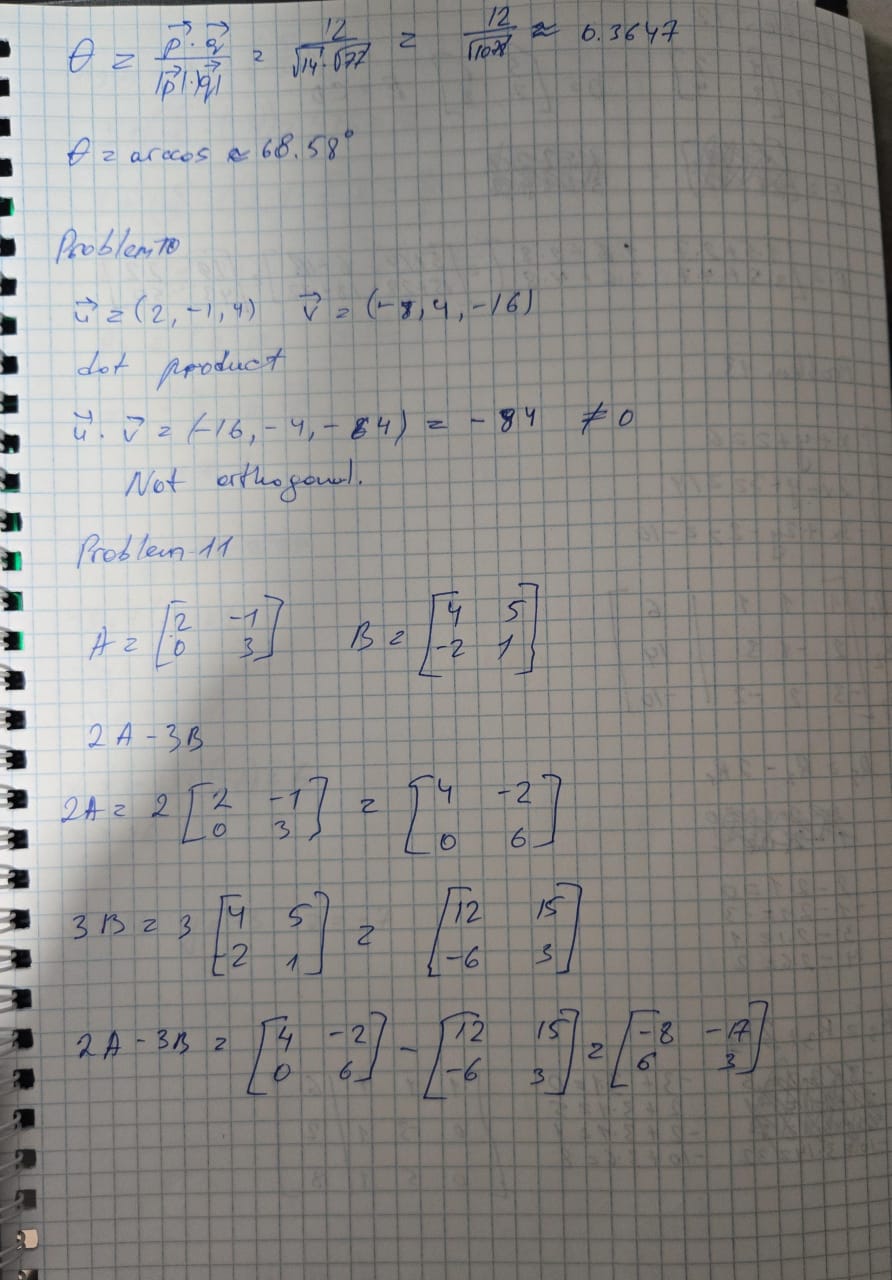 θ = p⃗ · q⃗ / |p⃗| · |q⃗| = 12 / √14 · √77 = 12 / √1078 ≈ 0.3647
θ = arccos ≈ 68.58°
Problem 10
u⃗ = (2, -1, 4) v⃗ = (-8, 4, -16)
dot product
u⃗ · v⃗ = (-16, -4, -64) = -84 ≠ 0
Not orthogonal.
Problem 11
A = [2 -1; 0 3] B = [4 5; -2 1]
2A - 3B
2A = 2 [2 -1; 0 3] = [4 -2; 0 6]
3B = 3 [4 5; -2 1] = [12 15; -6 3]
2A - 3B = [4 -2; 0 6] - [12 15; -6 3] = [-8 -17; 6 3]